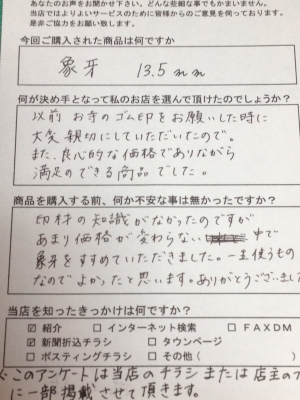 あなたのお声をお聞かせ下さい。どんな些細な事でもかまいません。
当店ではよりよいサービスのために皆様からのご意見を伺っております。
是非ご協力をお願い致します。
今回ご購入された商品は何ですか
象牙 13.5mm
何が決め手となって私のお店を選んで頂けたのでしょうか?
以前 お寺のゴム印をお願いした時に
大変親切にしていただいたので。
また、良心的な価格でありながら
満足のできる商品でした。
商品を購入する前、何か不安な事は無かったですか?
印材の知識がなかったのですが
あまり価格が変わらない 中で
象牙をすすめていただきました。一生使うもの
なのでよかったと思います。ありがとうございまし
当店を知ったきっかけは何ですか?
☑ 紹介 □ インターネット検索 □ FAXDM
☑ 新聞折込チラシ □ タウンページ
□ ポスティングチラシ □ その他(
このアンケートは当店のチラシまたは店主の
に一部掲載させて頂きます。